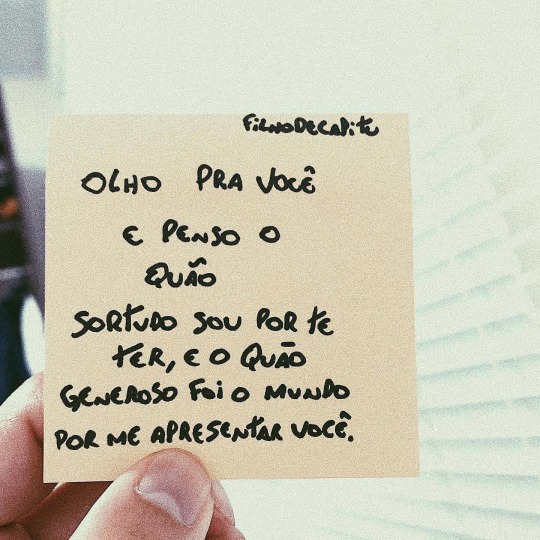 FilhoDeCapitu
OLHO PRA VOCÊ
E PENSO O
QUÃO
SORTUDO SOU POR TE
TER, E O QUÃO
GENEROSO FOI O MUNDO
POR ME APRESENTAR VOCÊ.